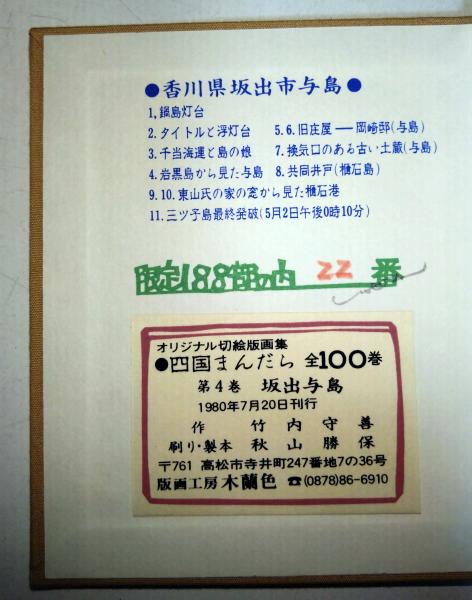 ●香川県坂出市与島●
1,鍋島灯台
2.タイトルと浮灯台　5.6.旧庄屋—岡崎邸(与島)
3.千当海運と島の娘　7.換気口のある古い土蔵(与島)
4.岩黒島から見た与島　8.共同井戸(櫃石島)
9.10.東山氏の家の窓から見た櫃石港
11.三ツ子島最終発破(5月2日午後0時10分)
限定188部の内 22 番
オリジナル切絵版画集
●四国まんだら 全100巻
第4巻 坂出与島
1980年7月20日刊行
作 竹内守善
刷り・製本 秋山勝保
〒761 高松市寺井町247番地7の36号
版画工房木蘭色 ☎(0878)86-6910